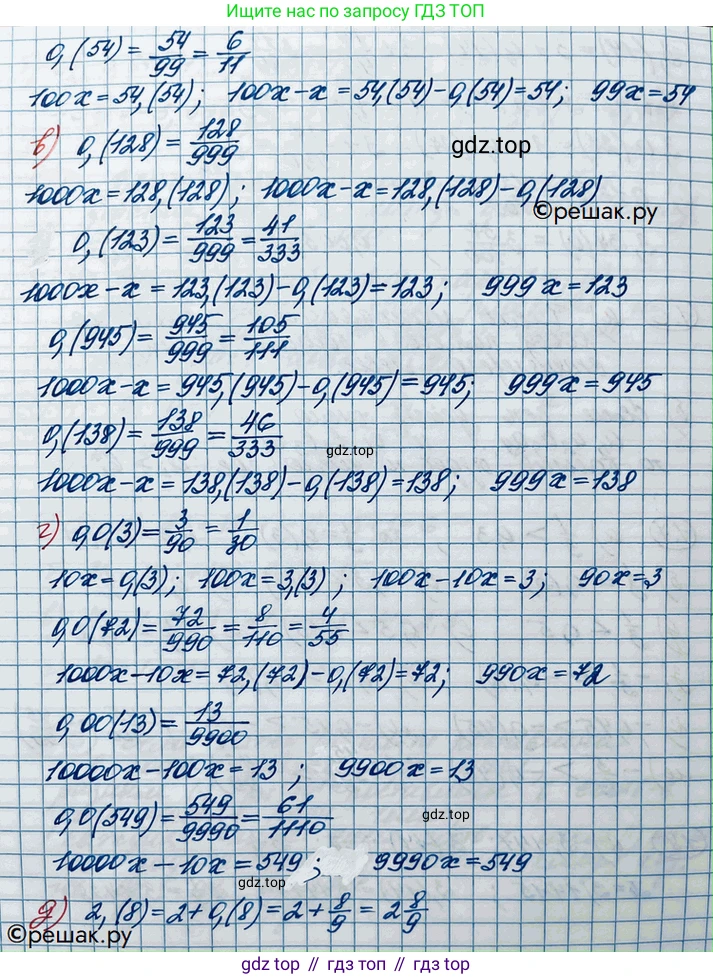 Ищите нас по запросу ГДЗ ТОП
0,(54) = 54/99 = 6/11
100x = 54,(54); 100x - x = 54,(54) - 0,(54) = 54; 99x = 54
в) 0,(128) = 128/999
gdz.top
1000x = 128,(128); 1000x - x = 128,(128) - 0,(128)
©решак.ру
0,(123) = 123/999 = 41/333
1000x - x = 123,(123) - 0,(123) = 123; 999x = 123
0,(945) = 945/999 = 105/111
1000x - x = 945,(945) - 0,(945) = 945; 999x = 945
0,(138) = 138/999 = 46/333
gdz.top
1000x - x = 138,(138) - 0,(138) = 138; 999x = 138
г) 0,0(3) = 3/90 = 1/30
10x = 0,(3); 100x = 3,(3); 100x - 10x = 3; 90x = 3
0,0(72) = 72/990 = 8/110 = 4/55
1000x - 10x = 72,(72) - 0,(72) = 72; 990x = 72
0,00(13) = 13/9900
10000x - 100x = 13; 9900x = 13
0,0(549) = 549/9990 = 61/1110
gdz.top
10000x - 10x = 549; 9990x = 549
gdz.top
д) 2,(8) = 2 + 0,(8) = 2 + 8/9 = 2 8/9
©решак.ру
gdz top // гдз топ // gdz.top